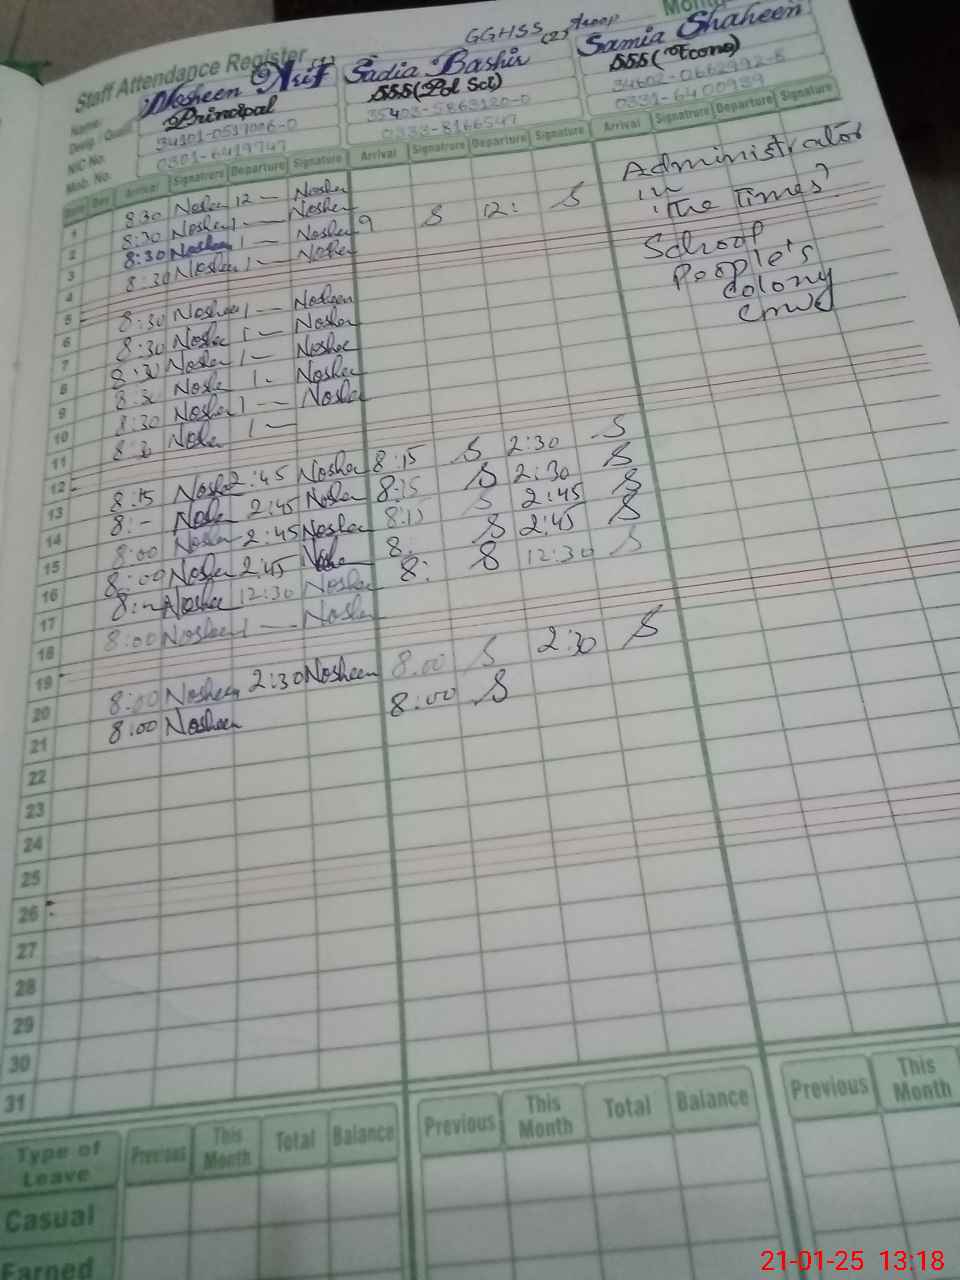 GGHSS (2) Aroop
Month
Staff Attendance Register
Nosheen Asif (1) Sadia Bashir Samia Shaheen
Name
Principal SSS(Pol Sci) SSS(Econo)
Desig / Qualif
NIC No. 34101-0517006-0 35403-5863120-0 34602-0662992-8
Mob. No. 0301-6419747 0333-8166547 0331-6400939
Date Day Arrival Signature Departure Signature Arrival Signature Departure Signature Arrival Signature Departure Signature
1 8:30 Noshe 12 — Noshe
2 8:30 Noshe 1 — Noshe
3 8:30 Noshe 1 — Noshe 9 S 12: S
4 8:30 Noshe 1 — Noshe
5
6 8:30 Nosheen 1 — Nosheen
7 8:30 Noshe 1 — Noshe
8 8:30 Noshe 1 — Noshe
9 8:30 Noshe 1 - Noshe
10 8:30 Noshe 1 — Noshe
11 8:30 Noshe 1 —
12
13 8:15 Noshe 2:45 Noshe 8:15 S 2:30 S
14 8:- Noshe 2:45 Noshe 8:15 S 2:30 S
15 8:00 Noshe 2:45 Noshe 8:15 S 2:45 S
16 8:00 Noshe 2:45 Noshe 8: S 2:45 S
17 8:- Noshe 12:30 Noshe 8: S 12:30 S
18 8:00 Nosheen 1 — Noshe
19
20 8:00 Nosheen 2:30 Nosheen 8:00 S 2:30 S
21 8:00 Nosheen 8:00 S
22
23
24
25
26
27
28
29
30
31
Administrator
in
'The Times'
School
People's
Colony
Type of Leave Previous This Month Total Balance Previous This Month Total Balance Previous This Month
Casual
Earned
21-01-25 13:18